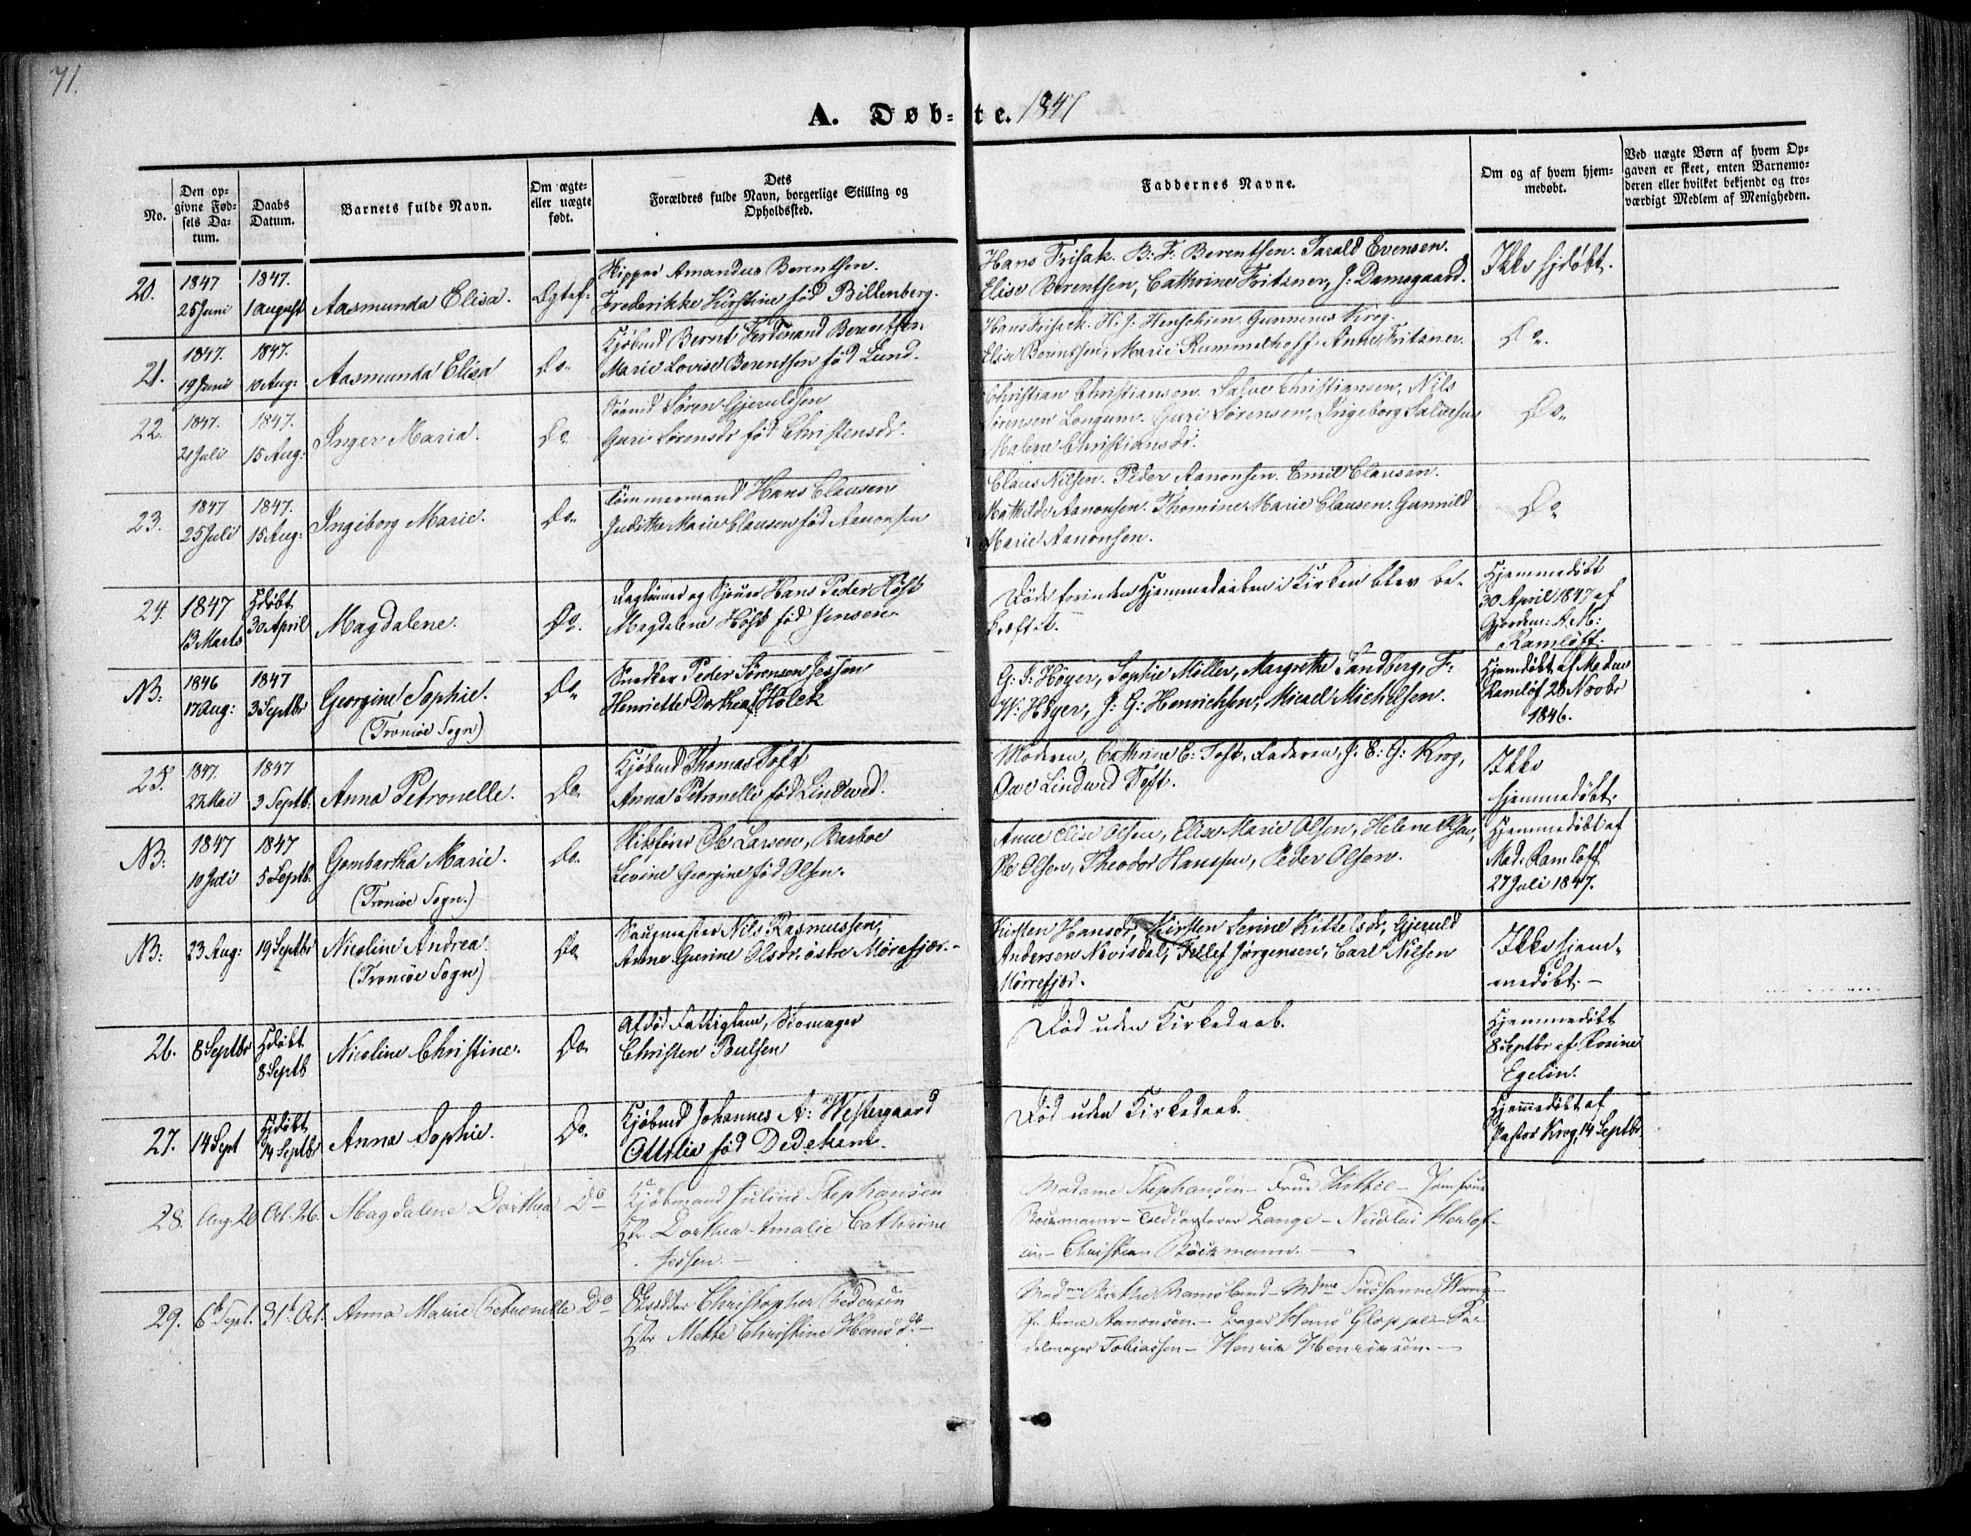 71.
A. Døb=te. 1847
No.
Den op-
givne Fød-
sels Da-
tum.
Daabs
Datum.
Barnets fulde Navn.
Om ægte-
eller uægte
født.
Dets
Forældres fulde Navn, borgerlige Stilling og
Opholdssted.
Faddernes Navne.
Om og af hvem hjem-
medøbt.
Ved uægte Børn af hvem Op-
gaven er skeet, enten Barnemo-
deren eller hvilket bekjendt og tro-
værdigt Medlem af Menigheden.
20.
1847
25 Juni
1847.
1 August
Aasmunda Elisa.
Ægtef:
Skipper Amandus Berentsen.
Frederikke Kirstine född Billenberg.
Hans Frisak. B: F. Berentsen. Tarald Evensen.
Elise Berentsen, Cathrine Fritzner, J: Damsgaard.
Ikke hjdøbt.
21.
1847.
19 Juni
1847.
10 Aug:
Aasmunda Elisa
Do.
Kjøbmd Bernt Ferdinand Berentsen
Marie Lovise Berentsen fød Lund.
Hans Frisack. H. J. Henschien. Gunnerus Krog.
Elise Berentsen, Marie Rummelhoff. Anne Fritzner.
Do.
22.
1847.
21 Juli
1847.
15 Aug:
Inger Maria.
Do
Søemd Søren Gjeruldsen
Guri Sørensdr fød Christensdr.
Christian Christiansen. Salve Christiansen, Nils
Sørensen Longum. Guri Sørensen, Ingeborg Salvesen
Malene Christiansdr.
Do.
23.
1847
25 Juli
1847.
15 Aug:
Ingeborg Marie.
Do.
Tømmermand Hans Clausen
Judithe Marie Clausen fød Aanonsen
Claus Nilsen. Peder Aanonsen. Emil Clausen.
Mathilde Aanonsen. Thomine Marie Clausen. Gunnild
Marie Aanonsen.
Do
24.
1847
13 Marts
Hdøbt
30 April
Magdalene.
Do.
Daglönner og Sjouer Hans Peder Höst
Magdalene Höst fød Jensen
Døde forinden Hjemmedaaben i Kirken blev be-
kræftet.
Hjemmedøbt
30 April 1847 af
Gjordem: A. M:
Ramløff.
NB:
1846
17 Aug:
1847
3 Septbr
Georgine Sophie.
(Tromöe Sogn)
Do.
Snedker Peder Sørensen Jessen
Henriette Dorthea f. Holck
G. J. Höyer, Sophie Möller, Margrethe Sandberg, F:
W: Höyer, J: G: Henrichsen, Micael Michelsen.
Hjemdøbt af Madm
Ramløf 28 Novbr
1846.
25.
1847.
27 Mai
1847
3 Septb:
Anna Petronelle.
Do.
Kjøbmd Thomas Toft
Anna Petronelle fød Lindved.
Moderen, Cathrine E: Toft, Faderen, J: E: G: Krog,
Ove Lindved Toft.
Ikke
hjemmedøbt.
NB:
1847
10 Juli
1847
5 Septb.
Gombartha Marie.
(Tromöe Sogn.)
Do.
Ole Larsen, Barboe
Levine Georgine fød Olsen.
Anne Elise Olsen, Elise Marie Olsen, Helene Olsen,
Ole Olsen, Theodor Hanssen, Peder Olsen.
Hjemmedøbt af
Mad. Ramløff
27 Juli 1847.
NB:
23 Aug:
19 Septbr
Nicoline Andrea.
(Tromöe Sogn)
Do
Saugmester Nils Rasmussen,
Anne Gurine Olsdr, östre Mørefjær.-
Kirsten Hansdr, Kirsten Serine Kittelsdr, Gjeruld
Andersen Nævisdal, Tellef Jørgensen, Carl Nilsen
Mørrefjær.
Ikke hjem-
medøbt.-
26.
8 Septbr
Hdøbt
8 Septb
Nicoline Christine.
Do.
Afdød Fattiglem, Skomager
Christen Poulsen
Død uden Kirkedaab.
Hjemmedøbt
8 Septbr af Rosine
Egelin.
27.
14 Sept
Hdøbt
14 Septbr
Anna Sophie.
Do.
Kjøbmd Johannes A: Westergaard
Ottilia fød Dedekam.
Død uden Kirkedaab
Hjemmedøbt af
Pastor Krog, 14 Septbr.
28.
Aug. 26
Oct. 26.
Magdalene Dorthea
Do
Kjøbmand Julius Stephansen
Hr Dorthea Amalie Cathrine
Jessen.-
Madame Stephansen- Frue Kittoe- Jomfrue
Böckmann- Toldcasserer Lange- Nicolai Herlof-
sen- Christian Böckmann.-
29.
6te Sept.
31te Oct.
Anna Marie Petronille
Do
Christopher Pedersen
Hr Mette Christine Hansdr-
Madme Birthe Ramsland- Mdme Susanne
Aanonsen.- Hans Gloppe-
delmager Tobiassen- Henrik Henriksen.-